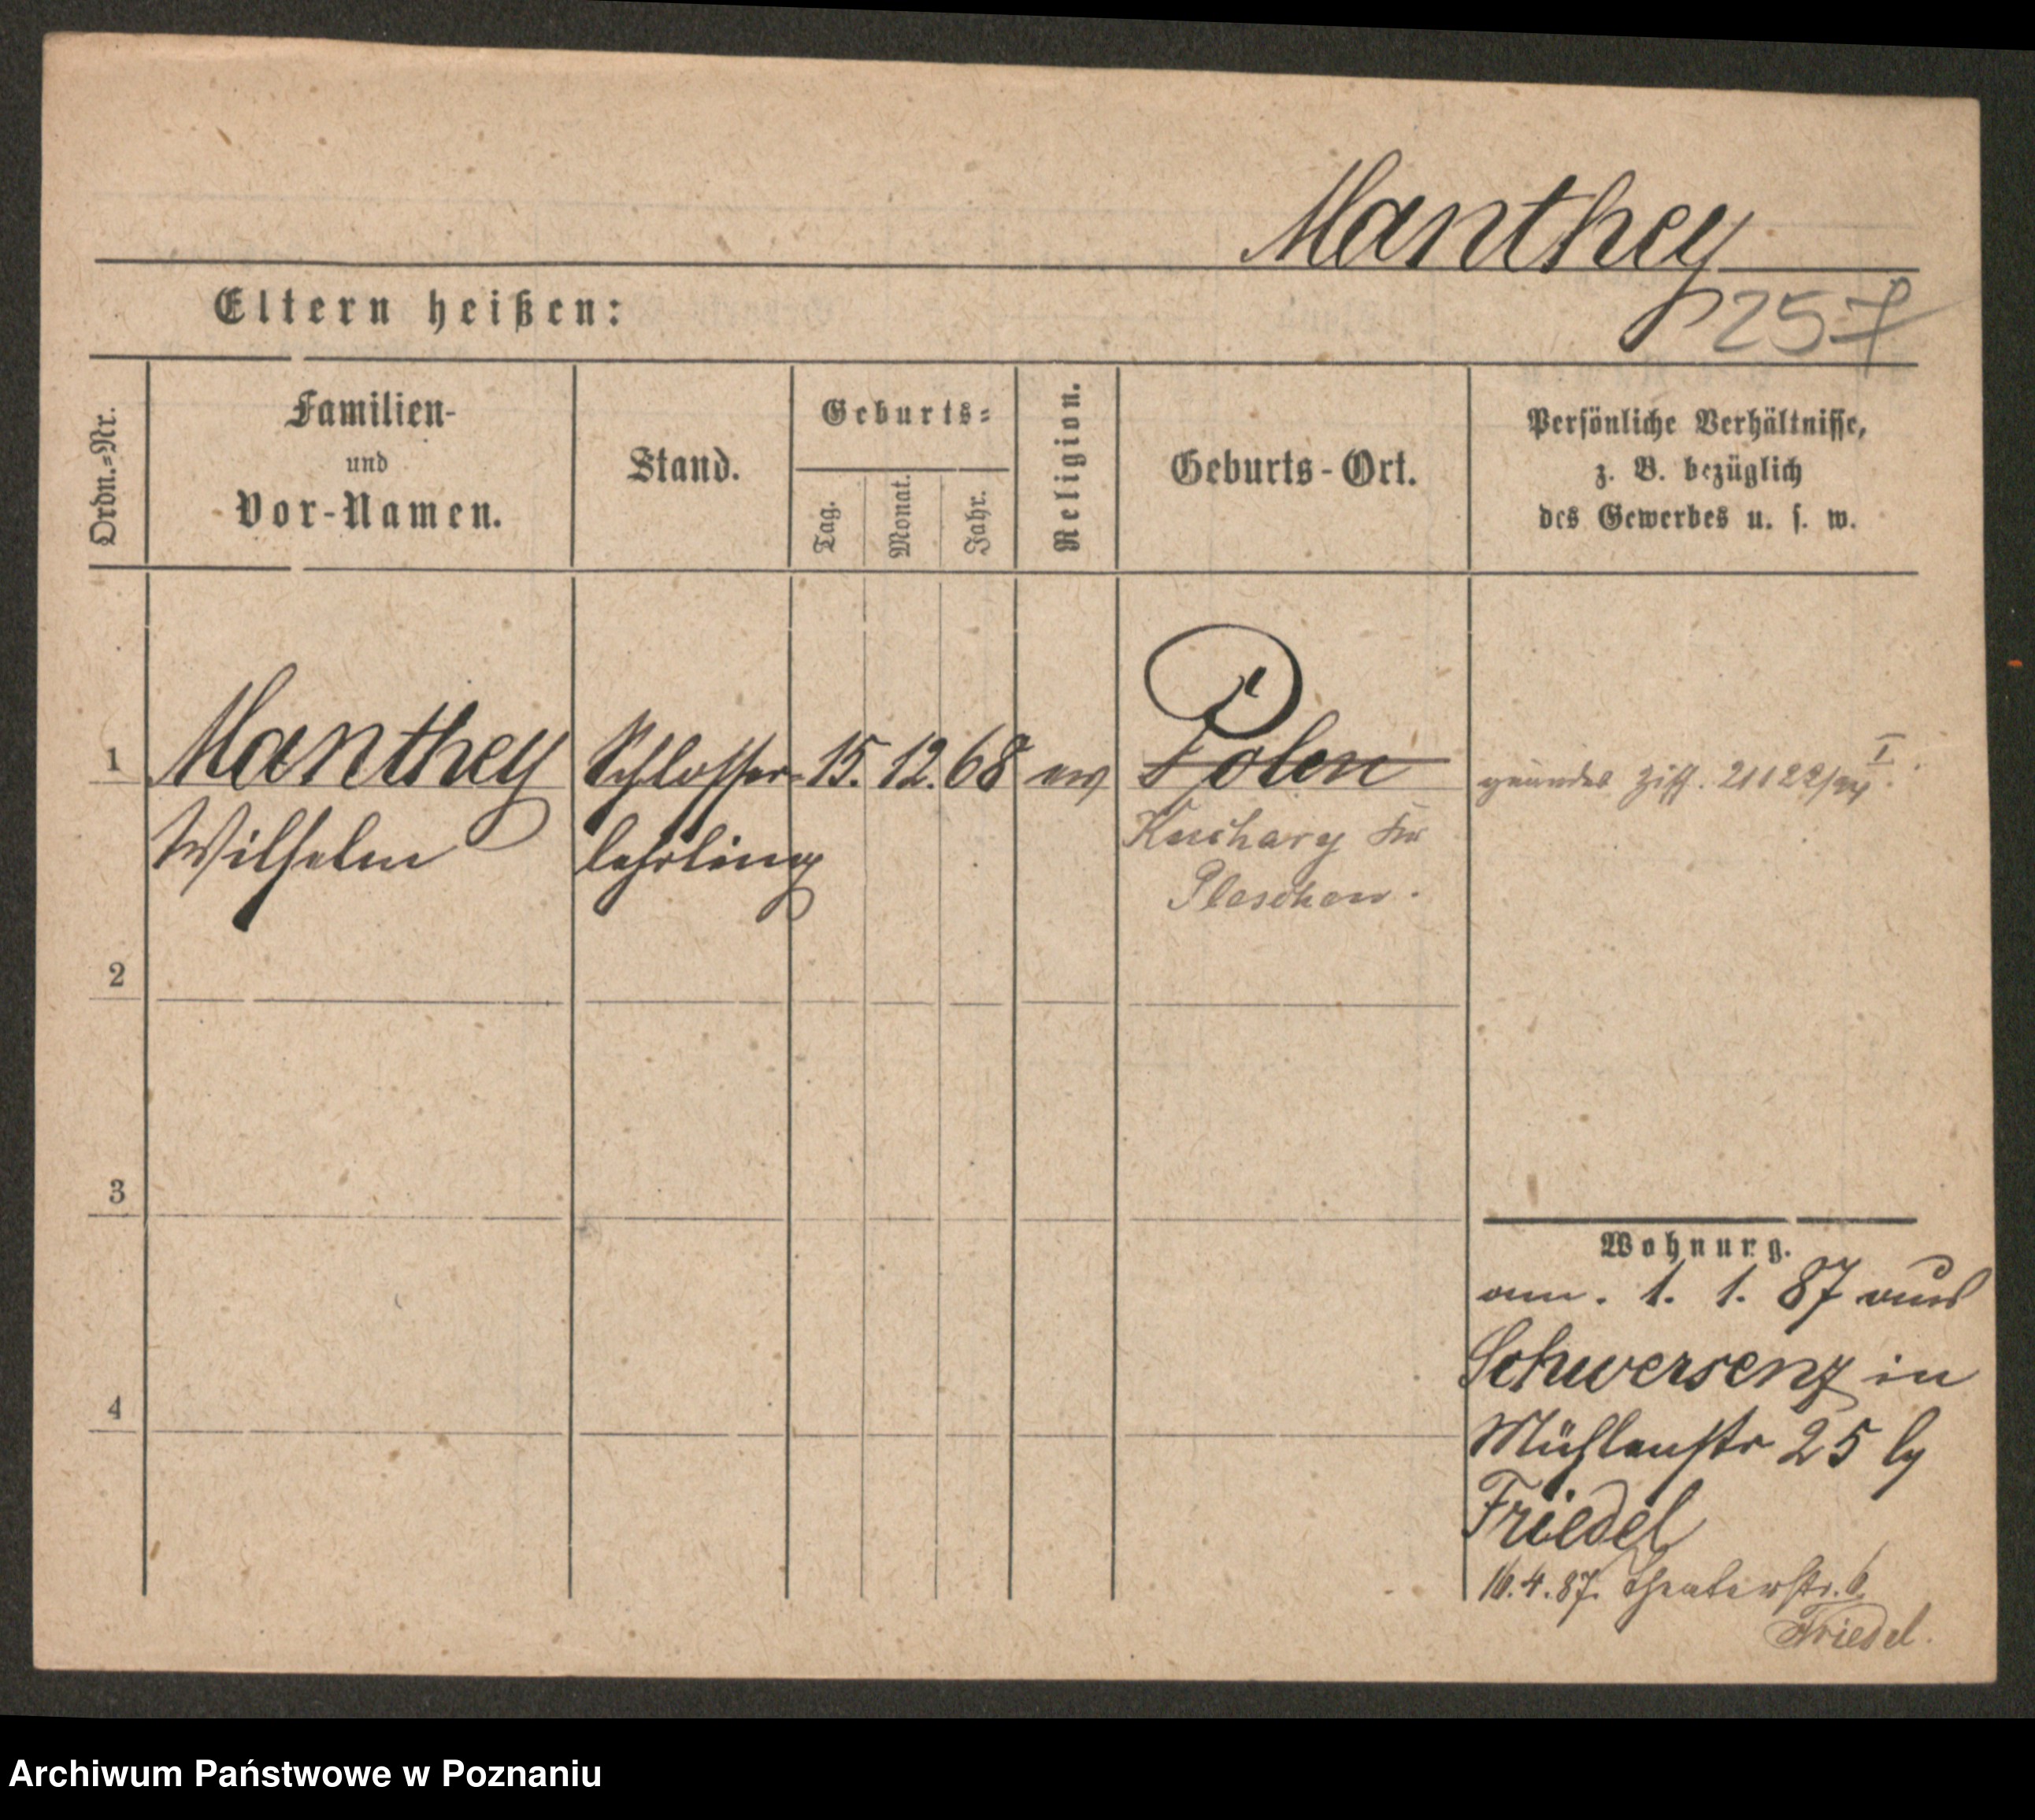 Manthey
257
Eltern heißen:
Ordn.=Nr.
Familien-
und
Vor-Namen.
Stand.
Geburts=
Tag.
Monat.
Jahr.
Religion.
Geburts-Ort.
Persönliche Verhältnisse,
z. B. bezüglich
des Gewerbes u. s. w.
1
Manthey
Wilhelm
Schlosser-
lehrling
15. 12. 68
ev
Polen
Kuchary
Pleschen.
2
3
4
Wohnung.
1. 1. 87 aus
Schwersenz in
Mühlenstr 25
Friedel
16.4.87. Theaterstr. 6.
Friedel.
Archiwum Państwowe w Poznaniu